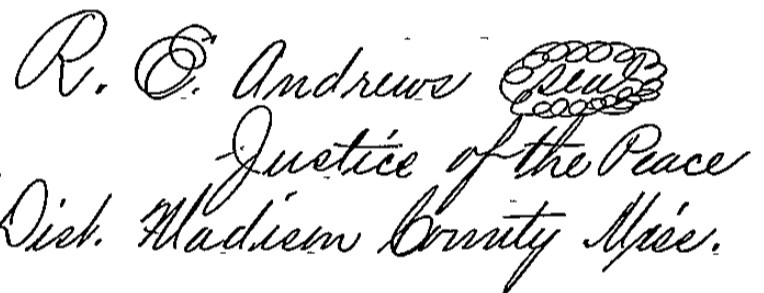 R. E. Andrews seal
Justice of the Peace
Dist. Madison County Miss.